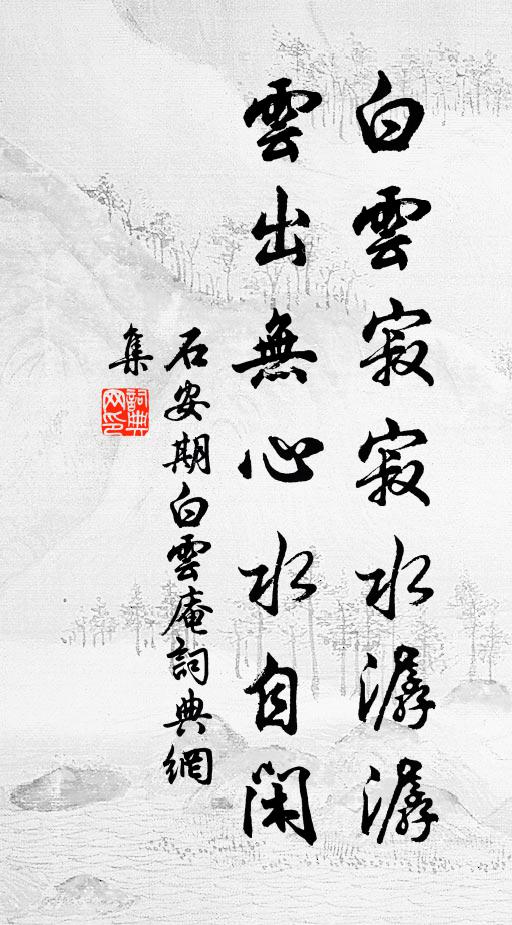 白雲寂寂水潺潺
雲出無心水自閑
石安期白雲庵詞典網
集
詞典網印